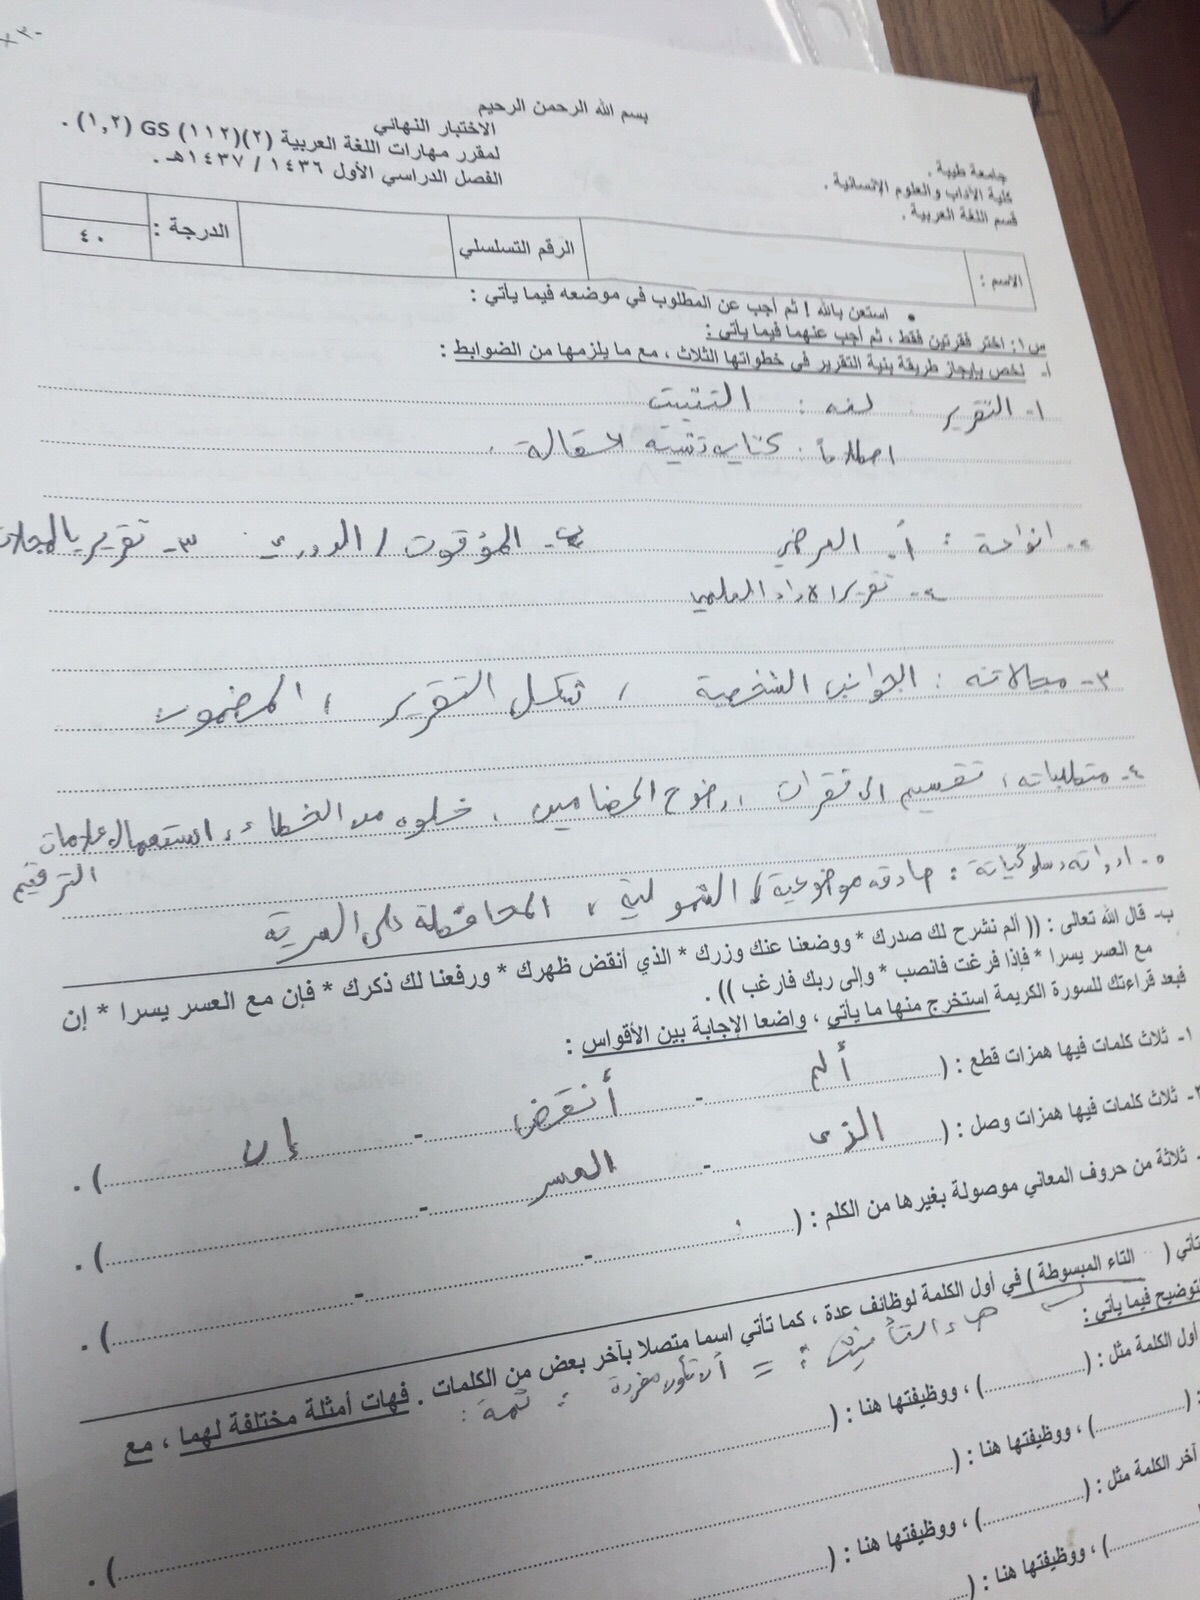 ٣٠ ×
بسم الله الرحمن الرحيم
جامعة طيبة .
كلية الآداب والعلوم الإنسانية .
قسم اللغة العربية .
الاختبار النهائي
لمقرر مهارات اللغة العربية (٢)(١١٢) GS (١,٢) .
الفصل الدراسي الأول ١٤٣٦ / ١٤٣٧هـ .
الاسم : الرقم التسلسلي الدرجة : ٤٠
• استعن بالله ! ثم أجب عن المطلوب في موضعه فيما يأتي :
س١: اختر فقرتين فقط ، ثم أجب عنهما فيما يأتي :
أ- لخص بإيجاز طريقة بنية التقرير في خطواتها الثلاث ، مع ما يلزمها من الضوابط :
١- التقرير لغه : التثبيت
اصطلاحاً :
٢- انواعة : أ- العرضي المؤقوت / الدوري ٣- تقرير بالمجلات
٤- تقرير
٣- مجالاته : الجوانب الشخصية ، شكل التقرير ، المضمون
٤- متطلباته ، تقسيم الى فقرات ، وضوح المضامين ، خلوه من الخطاء ، استعمال علامات
الترقيم
٥- ادواته وسلوكياته : صادقه موضوعية / الشمولية ، المحافظة على السرية
ب- قال الله تعالى : (( ألم نشرح لك صدرك * ووضعنا عنك وزرك * الذي أنقض ظهرك * ورفعنا لك ذكرك * فإن مع العسر يسرا * إن
مع العسر يسرا * فإذا فرغت فانصب * وإلى ربك فارغب )) .
فبعد قراءتك للسورة الكريمة استخرج منها ما يأتي ، واضعا الإجابة بين الأقواس :
١- ثلاث كلمات فيها همزات قطع : ( ألم - أنقض - إن ) .
٢- ثلاث كلمات فيها همزات وصل : ( الذي - العسر - ) .
- ثلاثة من حروف المعاني موصولة بغيرها من الكلم : ( - - ) .
تأتي ( التاء المبسوطة ) في أول الكلمة لوظائف عدة ، كما تأتي اسما متصلا بآخر بعض من الكلمات . فهات أمثلة مختلفة لهما ، مع
توضيح فيما يأتي :
أول الكلمة مثل : ( ) ، ووظيفتها هنا : ( ) .
: ( ) ، ووظيفتها هنا : (
آخر الكلمة مثل : ( ) ، ووظيفتها هنا : (
) ، ووظيفتها هنا : (